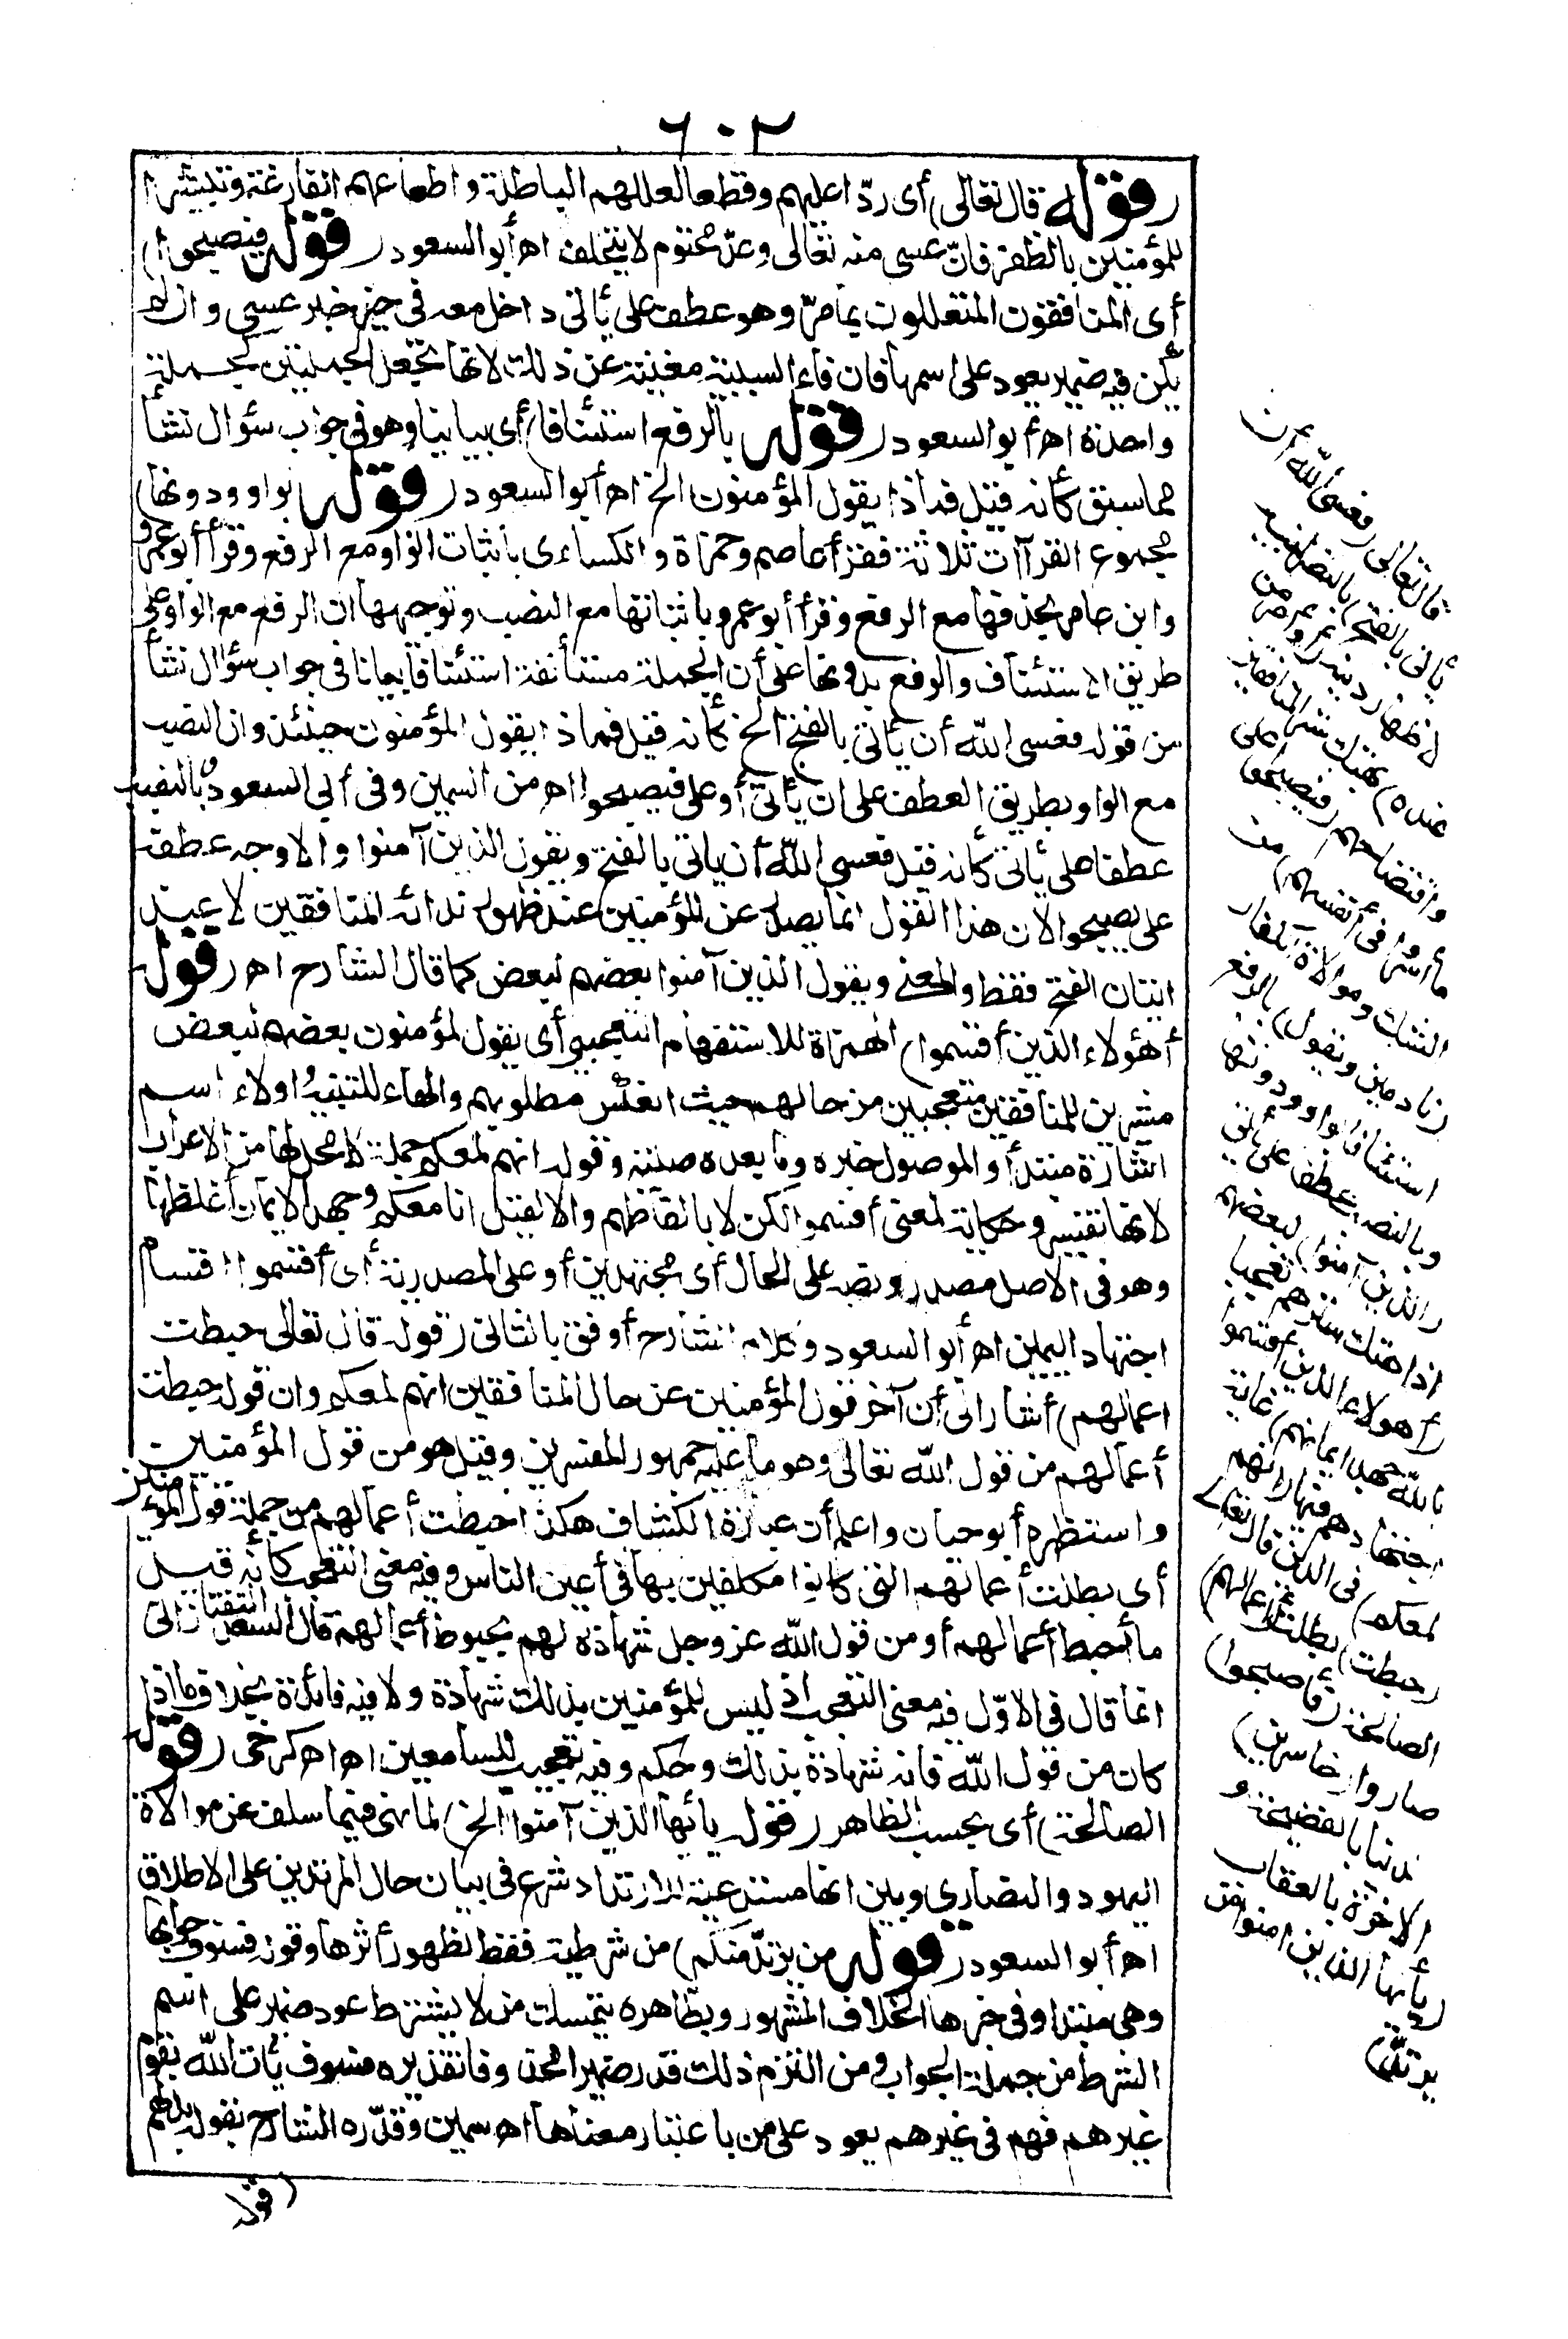 ٦٠٢
(قوله قال تعالى) أى ردّا عليهم وقطعا لعللهم الباطلة واطماعهم الفارغة وتبشيرا
للمؤمنين بالظفر فانّ عسى منه تعالى وعد محتوم لا يتخلف اهـ أبو السعود (قوله فيصبحوا)
أى المنافقون المتعللون بما مرّ وهو عطف على يأتى داخل معه فى حيز خبر عسى وان لم
يكن فيه ضمير يعود على اسمها فان فاء السببية مغنية عن ذلك لانها تجعل الجملتين كجملة
واحدة اهـ أبو السعود (قوله بالرفع استئنافا) أى بيانيا وهو فى جواب سؤال نشأ
مما سبق كأنه قيل فماذا يقول المؤمنون الخ اهـ أبو السعود (قوله بواو ودونها)
مجموع القراآت ثلاثة فقرأ عاصم وحمزة والكساءى باثبات الواو مع الرفع وقرأ أبو عمرو
وابن عامر بحذفها مع الرفع وقرأ أبو عمرو باثباتها مع النصب وتوجيهها ان الرفع مع الواو على
طريق الاستئناف والرفع بدونها على أن الجملة مستأنفة استئنافا بيانا فى جواب سؤال نشأ
من قوله فعسى الله أن يأتى بالفتح الخ كأنه قيل فماذا يقول المؤمنون حينئذ وان النصب
مع الواو بطريق العطف على ان يأتى أو على فيصبحوا اهـ من السمين وفى أبى السعود وبالنصب
عطفا على يأتى كأنه قيل فعسى الله أن ياتى بالفتح ويقول الذين آمنوا والاوجه عطفه
على يصبحوا لان هذا القول انما يصدر عن المؤمنين عند ظهور ندامة المنافقين لا عند
اتيان الفتح فقط والمعنى ويقول الذين آمنوا بعضهم لبعض كما قال الشارح اهـ (قوله
أهؤلاء الذين أقسموا) الهمزة للاستفهام التعجبى أى يقول المؤمنون بعضهم لبعض
مشيرين للمنافقين متعجبين من حالهم حيث انعكس مطلوبهم والهاء للتنبيه وأولاء اسم
اشارة مبتدأ والموصول خبره وما بعده صلته وقوله انهم لمعكم جملة لا محل لها من الاعراب
لانها تفسير وحكاية لمعنى أقسموا لكن لا بالفاظهم والا لقيل انا معكم وجهد الايمان أغلظها
وهو فى الاصل مصدر ونصبه على الحال أى مجتهدين أو على المصدرية أى أقسموا اقسام
اجتهاد اليمين اهـ أبو السعود وكلام الشارح أوفق بالثانى (قوله قال تعالى حبطت
اعمالهم) أشار الى أن آخر قول المؤمنين عن حال المنافقين انهم لمعكم وان قوله حبطت
أعمالهم من قول الله تعالى وهو ما عليه جمهور المفسرين وقيل هو من قول المؤمنين
واستظهره أبو حيان واعلم أن عبارة الكشاف هكذا حبطت أعمالهم من جملة قول المؤمنين
أى بطلت أعمالهم التى كانوا مكلفين بها فى أعين الناس وفيه معنى التعجب كأنه قيل
ما أحبط أعمالهم أو من قول الله عز وجل شهادة لهم بحبوط أعمالهم قال السعد التفتازانى
انما قال فى الاوّل فيه معنى التعجب اذ ليس للمؤمنين بذلك شهادة ولا فيه فائدة بخلاف ما اذا
كان من قول الله فانه شهادة بذلك وحكم وفيه تعجيب للسامعين اهـ اهـ كرخى (قوله
الصالحة) أى بحسب الظاهر (قوله يا أيها الذين آمنوا الخ) لما نهى فيما سلف عن موالاة
اليهود والنصارى وبين انها مستدعية للارتداد شرع فى بيان حال المرتدين على الاطلاق
اهـ أبو السعود (قوله من يرتدّ منكم) من شرطية فقط لظهور أثرها وقوله فسوف جوابها
وهى مبتدا وفى خبرها الخلاف المشهور وبظاهره يتمسك من لا يشترط عود ضمير على اسم
الشرط من جملة الجواب ومن التزم ذلك قدر ضميرا محذوفا تقديره فسوف يأت الله بقوم
غيرهم فهم فى غيرهم يعود على من باعتبار معناها اهـ سمين وقدّره الشارح بقوله بدلهم
(قوله
قال تعالى (فعسى الله أن
يأتى بالفتح) بالنصر لنبيه
لاظهار دينه (أو أمر من
عنده) بهتك ستر المنافقين
وافتضاحهم (فيصبحوا على
ما أسروا فى أنفسهم) من
الشك وموالاة الكفار
(نادمين ويقول) بالرفع
استئنافا بواو ودونها
وبالنصب عطفا على يأتى
(الذين آمنوا) لبعضهم
اذا هتك سترهم تعجبا
(أهؤلاء الذين أقسموا
بالله جهد ايمانهم) غاية
اجتهادهم فيها (انهم
لمعكم) فى الدين قال تعالى
(حبطت) بطلت (أعمالهم)
الصالحة (فأصبحوا)
صاروا (خاسرين)
الدنيا بالفضيحة و
الآخرة بالعقاب
(يا أيها الذين امنوا من
يرتدّ)